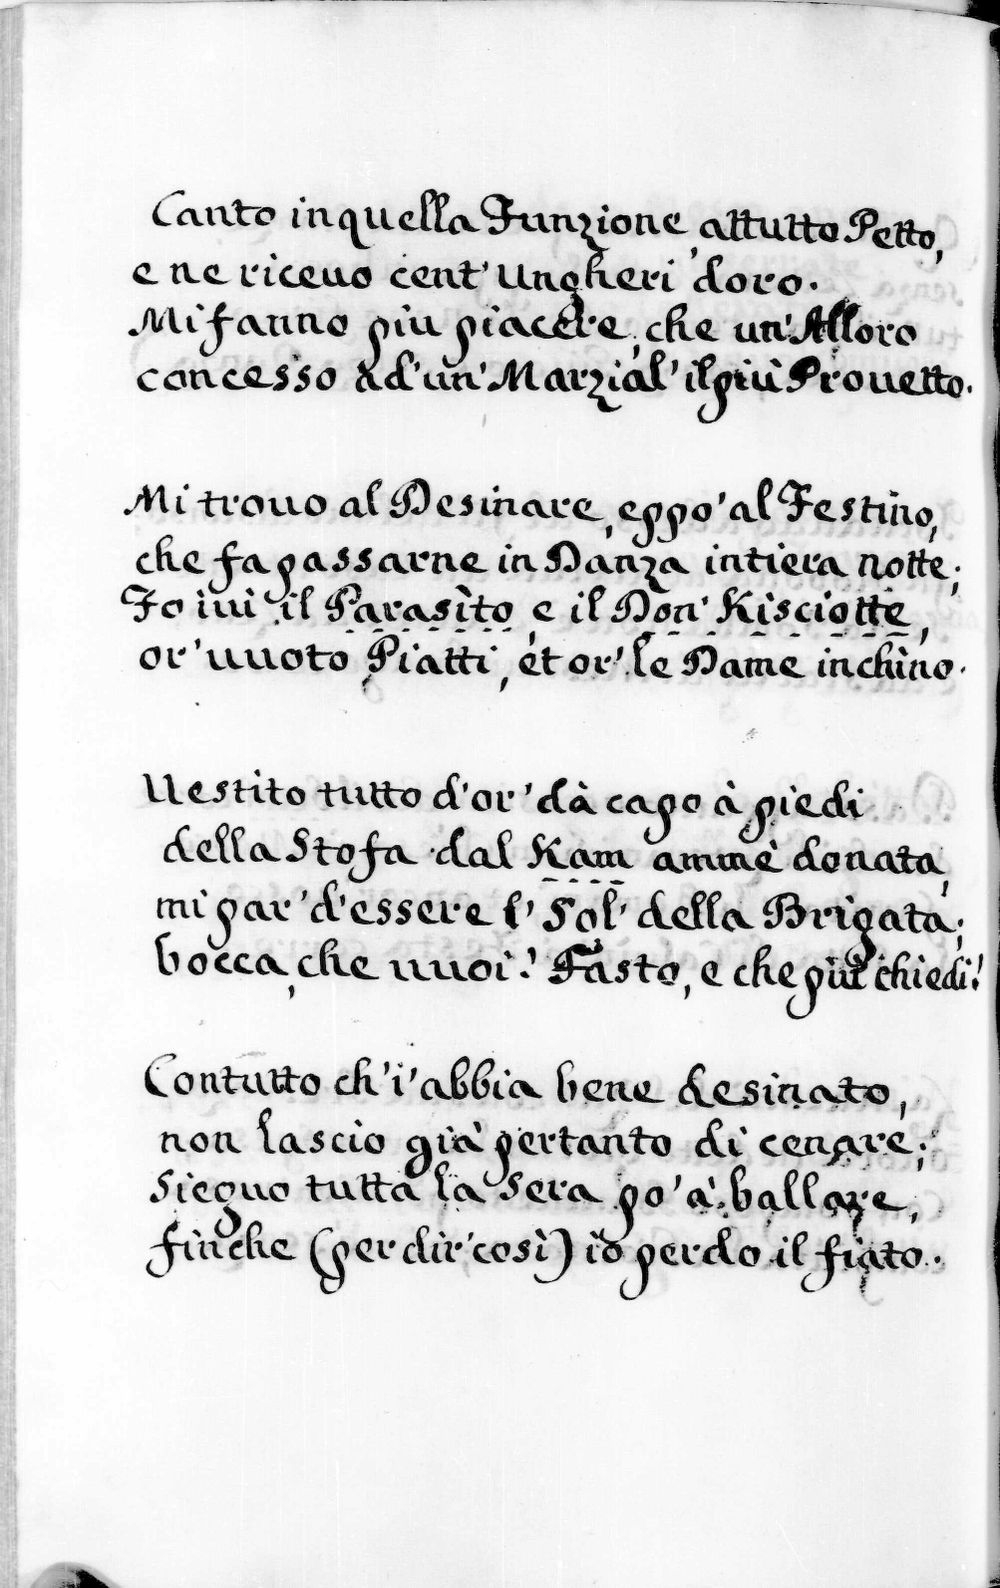 Canto in quella Funzione, attutto Petto,
e ne riceuo cent' Ungheri 'doro.
Mi fanno piu piacere, che un' Alloro
concesso ad' un' Marzial' il più Prouetto.
Mi trouo al Desinare, eppo' al Festino,
che fa passarne in Danza intiera notte;
Io iui il Parasìto, e il Don' Kisciotte,
or' uuoto Piatti, et or' le Dame inchìno.
Uestito tutto d'or' dà capo à piedi
della Stofa dal Kam ammè donata,
mi par' d'essere l' Sol' della Brigata;
bocca, che uuoi? Fasto, e che più chiedi?
Contutto ch'i' abbia bene desinato,
non lascio già pertanto di cenare;
Sieguo tutta la Sera po' à ballare,
finche (per dir' così) io perdo il fiato.